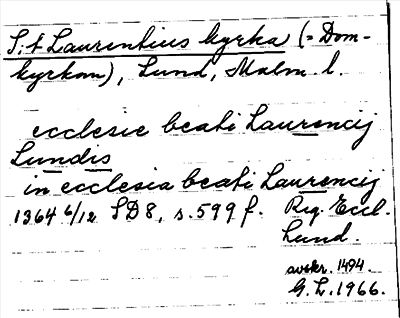 S:t Laurentius kyrka (= Dom-
kyrkan), Lund, Malm. l.
ecclesie beati Laurencij
Lundis
in ecclesia beati Laurencij
1364 6/12 SD8, s. 599 f. Reg. Eccl.
Lund.
avskr. 1494.
G. L. 1966.